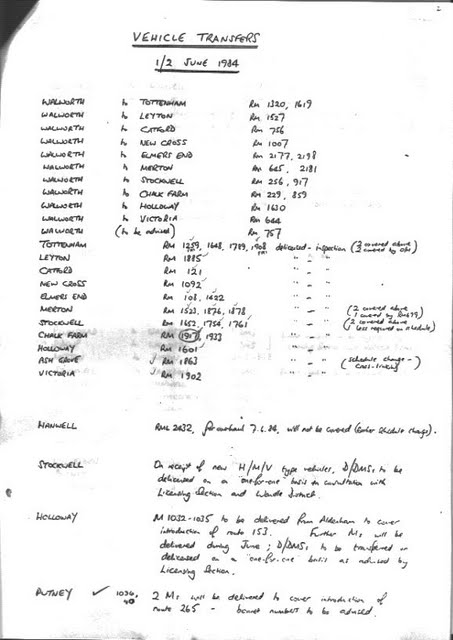 2
VEHICLE TRANSFERS
1/2 JUNE 1984
WALWORTH to TOTTENHAM RM 1320, 1619
WALWORTH to LEYTON RM 1527
WALWORTH to CATFORD RM 756
WALWORTH to NEW CROSS RM 1007
WALWORTH to ELMERS END RM 2177, 2198
WALWORTH to MERTON RM 645, 2181
WALWORTH to STOCKWELL RM 256, 917
WALWORTH to CHALK FARM RM 229, 859
WALWORTH to HOLLOWAY RM 1630
WALWORTH to VICTORIA RM 644
WALWORTH (to be advised) RM 757
TOTTENHAM RM 1259, 1648, 1789, 1908 delicensed - inspection (2 covered above
2 covered by OPO)
LEYTON RM 1885 " - "
CATFORD RM 121 " - "
NEW CROSS RM 1092 " - "
ELMERS END RM 108, 1422 " - "
MERTON RM 1523, 1876, 1878 " - " (2 covered above
1 covered by RM679)
STOCKWELL RM 1652, 1754, 1761 " - " (2 covered above
1 less required on schedule)
CHALK FARM RM 1917, 1933 " - "
HOLLOWAY RM 1601 " - "
ASH GROVE RM 1863 " - " (schedule change -
VICTORIA RM 1902 " - "
HANWELL RML 2432, for overhaul 7.6.84, will not be covered (earlier schedule change).
STOCKWELL On receipt of new H/M/V type vehicles, D/DMSs to be
delicensed on a "one-for-one" basis in consultation with
Licensing Section and Wandle District.
HOLLOWAY M 1032-1035 to be delivered from Aldenham to cover
introduction of route 153. Further Ms will be
delivered during June; D/DMSs to be transferred or
delicensed on a "one-for-one" basis as advised by
Licensing Section.
PUTNEY ✓ 1036, 40 2 Ms will be delivered to cover introduction of
route 265 - bonnet numbers to be advised.